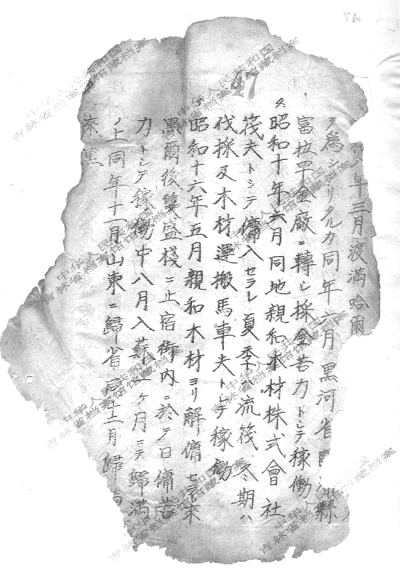 年三月渡満哈爾
為シアリタルカ同年六月黒河省
富拉罕金廠ニ轉シ採金苦力トシテ稼働
昭和十年六月同地親和木材株式會社
筏夫トシテ傭入セラレ夏季ハ流筏、冬期ハ
伐採及木材運搬馬車夫トシテ稼働
昭和十六年五月親和木材ヨリ解傭セラレ来
黒爾後雙盛棧ニ止宿街内ニ於テ日傭苦
力トシテ稼働中八月入蘇一ヶ月ニシテ歸満
ノ上同年十一月山東ニ歸省
中华人民共和国
吉林省档案馆